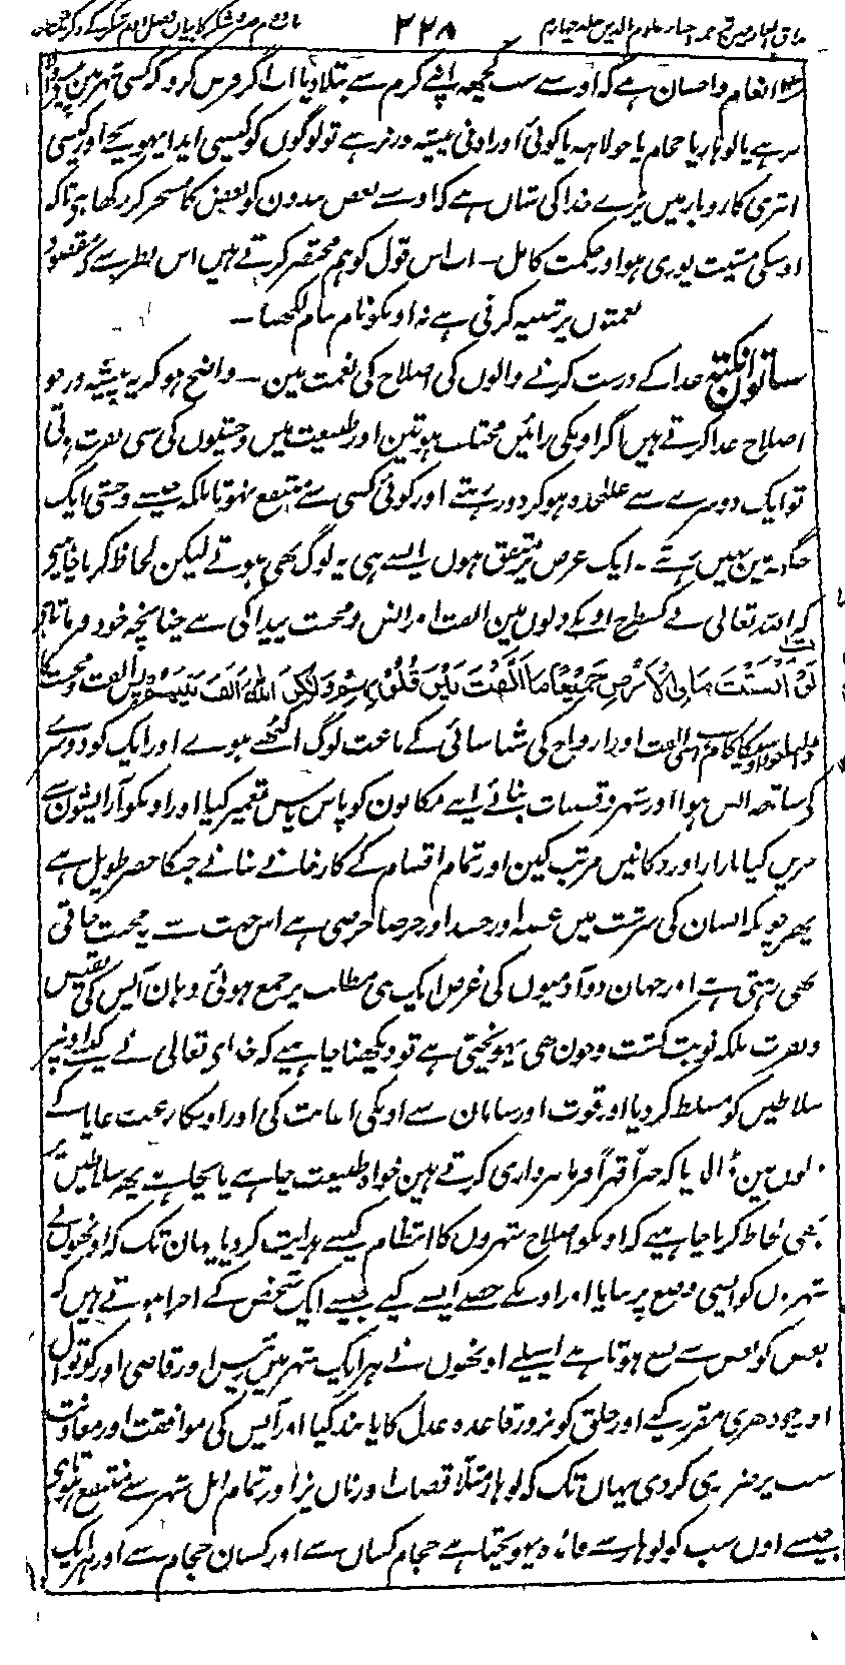 مذاق العارفین ترجمہ احیاء علوم الدین جلد چہارم ۲۲۸ باب دوم صبر و شکر کا بیان فصل دوم شکر کے ذکر میں
انعام و احسان ہے کہ اوسے سب کچھ اپنے کرم سے بتلا دیا اب اگر فرض کرو کہ کسی شہر میں
رہے یا لوہار یا حجام یا جولاہہ یا کوئی اور ادنی پیشہ ور نرہے تو لوگوں کو کیسی ایذا پہونچے اور کیسی
ابتری کاروبار میں پڑے خدا کی شان ہے کہ اوسے بعض بندون کو بعض کا مسخر کر رکھا ہے تاکہ
اوسکی مشیت پوری ہو اور حکمت کامل ـ اب اس قول کو ہم مختصر کرتے ہیں اس نظر سے کہ مقصود
نعمتوں پر تنبیہ کرنی ہے نہ اونکو تمام لکھنا ـ
ساتواں نکتہ خدا کے درست کرنے والوں کی اصلاح کی نعمت مین ـ واضح ہو کہ یہ پیشہ ور جو
اصلاح غذا کرتے ہیں اگر اونکی رائیں مختلف ہوتین اور طبیعت میں وحشیوں کی سی نفرت ہوتی
تو ایک دوسرے سے علٰحدہ ہو کر دور رہتے اور کوئی کسی سے منتفع نہوتا بلکہ جیسے وحشی ایک
جگہ مین نہیں رہتے ـ ایک غرض پر متفق ہوں ایسے ہی یہ لوگ بھی ہوتے لیکن لحاظ کرنا چاہیے
کہ اللہ تعالی نے کسطرح اونکے دلوں مین الفت اور انس و محبت پیدا کی سے چنانچہ خود فرماتا ہے
لَوْ اَنْفَقْتَ مَا فِی الْاَرْضِ جَمِیْعًا مَا اَلَّفْتَ بَیْنَ قُلُوْبِهِمْ وَلٰکِنَّ اللّٰهَ اَلَّفَ بَیْنَهُمْ پس الفت و محبت کا
ڈالنا اوسیکا کام ہے اسی الفت اور ارواح کی شناسائی کے باعث لوگ اکٹھے ہوے اور ایک کو دوسرے
کے ساتھ انس ہوا اور شہر و قصبات بنائے اپنے مکانون کو پاس پاس تعمیر کیا اور اونکو آرایشون سے
مزین کیا بازار اور دکانیں مرتب کین اور تمام اقسام کے کارخانے بنائے جسکا حصر طویل ہے
پھر چونکہ انسان کی سرشت میں غصہ اور حسد اور حرصا حرصی ہے اس جہت سے یہ محبت جاتی
بھی رہتی ہے اور جہان دو آدمیوں کی غرض ایک ہی مطلب پر جمع ہوئی وہان آپس کی بغض
و نفرت بلکہ نوبت کشت و خون بھی پہونچتی ہے تو دیکھنا چاہیے کہ خدای تعالی نے کیسے اونپر
سلاطین کو مسلط کر دیا اور قوت اور سامان سے اونکی اعانت کی اور اونکا رعب رعایا کے
دلوں مین ڈال دیا کہ جبراً قہراً فرمانبرداری کرتے ہین خواہ طبیعت چاہے یا نچاہے پھر سلاطین پر
بھی لحاظ کرنا چاہیے کہ اونکو اصلاح شہروں کا انتظام کیسے ہدایت کر دیا یہان تک کہ اونھوں نے
شہروں کو ایسی وضع پر بنایا اور اونکے حصے ایسے کیے جیسے ایک شخص کے اجزا ہوتے ہیں کہ
بعض کو بعض سے نفع ہوتا ہے اسیلیے اونھوں نے ہر ایک شہر میں رئیس اور قاضی اور کوتوال
اور چودھری مقرر کیے اور خلق کو بزور قاعدہ عدل کا پابند کیا اور آپس کی موافقت اور معاونت
سب پر ضروری کر دی یہاں تک کہ لوہار مثلاً قصاب اور نان پز اور تمام اہل شہر سے منتفع ہوتا ہے
جیسے اوں سب کو لوہار سے فائدہ پہونچتا ہے حجام کسان سے اور کسان حجام سے اور ہر ایک